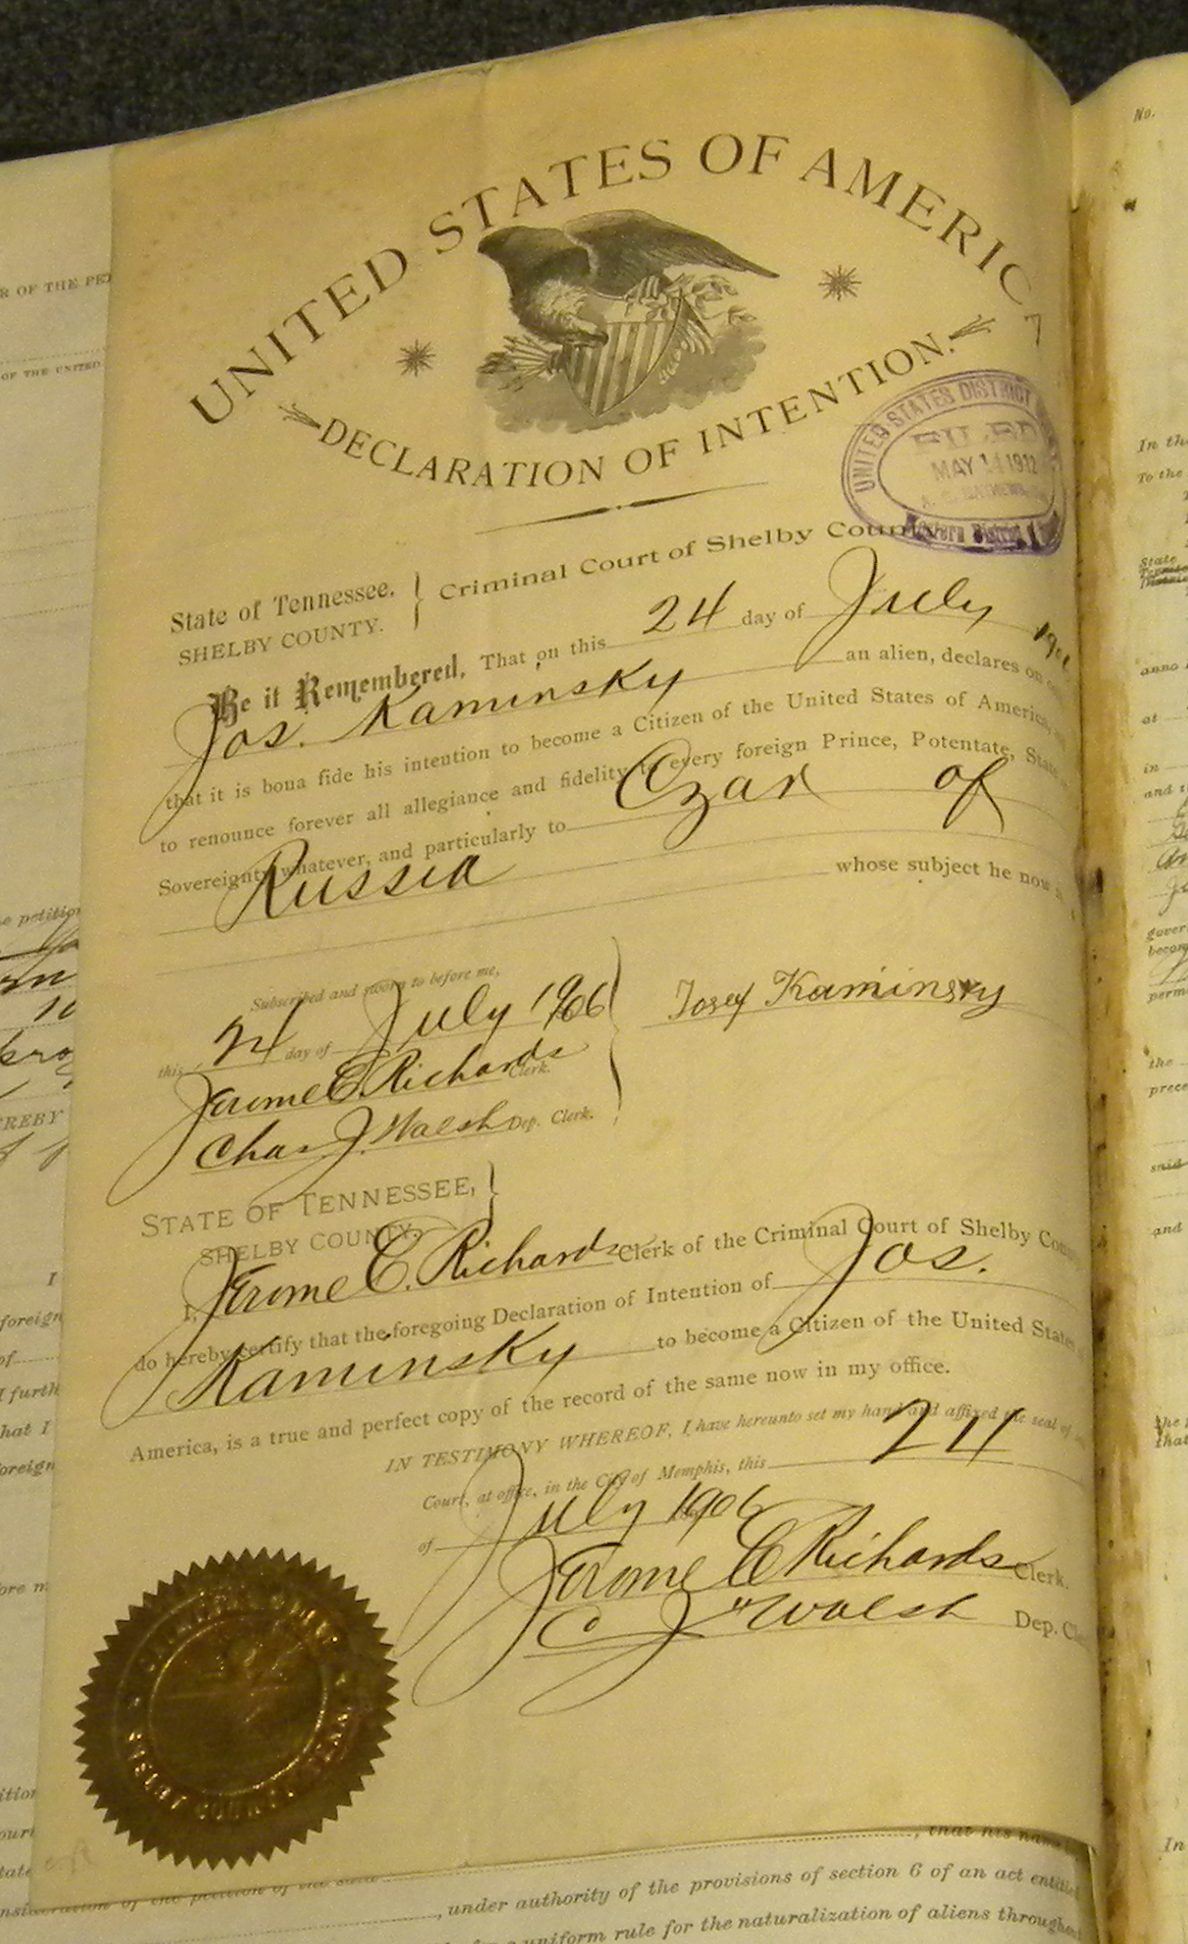 UNITED STATES OF AMERICA
DECLARATION OF INTENTION.
UNITED STATES DISTRICT
FILED
MAY 14 1912
Western District
State of Tennessee.
SHELBY COUNTY.
Criminal Court of Shelby Coun
Be it Remembered, That on this 24 day of July 190
Jos. Kaminsky an alien, declares on
that it is bona fide his intention to become a Citizen of the United States of America,
to renounce forever all allegiance and fidelity to every foreign Prince, Potentate, State
Sovereignty whatever, and particularly to Czar of
Russia whose subject he now
Subscribed and sworn to before me,
this 24 day of July 1906
Josef Kaminsky
Jerome C. Richards Clerk.
Chas J. Walsh Dep. Clerk.
STATE OF TENNESSEE,
SHELBY COUNTY.
I, Jerome C. Richards Clerk of the Criminal Court of Shelby
do hereby certify that the foregoing Declaration of Intention of Jos.
Kaminsky to become a Citizen of the United States
America, is a true and perfect copy of the record of the same now in my office.
IN TESTIMONY WHEREOF, I have hereunto set my hand and affixed the seal of
Court, at office, in the City of Memphis, this 24
of July 1906
Jerome C Richards Clerk.
C J Walsh Dep.
that his name
under authority of the provisions of section 6 of an act
uniform rule for the naturalization of aliens
R OF THE
OF THE UNITED
petition
EREBY
I
foreign
of
I furth
hat I
No.
In the
To the
State
anno
at
in
and
the
and
In